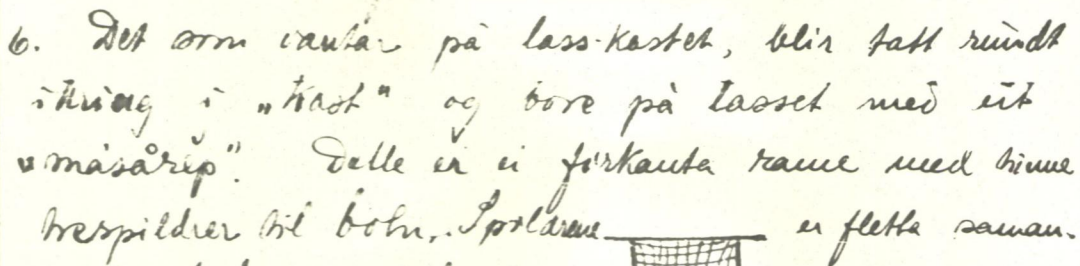 6. Det som vantar på lass-kastet, blir tatt rundt
ikring i „Kast“ og bore på lasset med eit
„måsårip“. Dette er ei firkanta rame med tunne
trespildrer til botn. Spildrene er fletta saman.